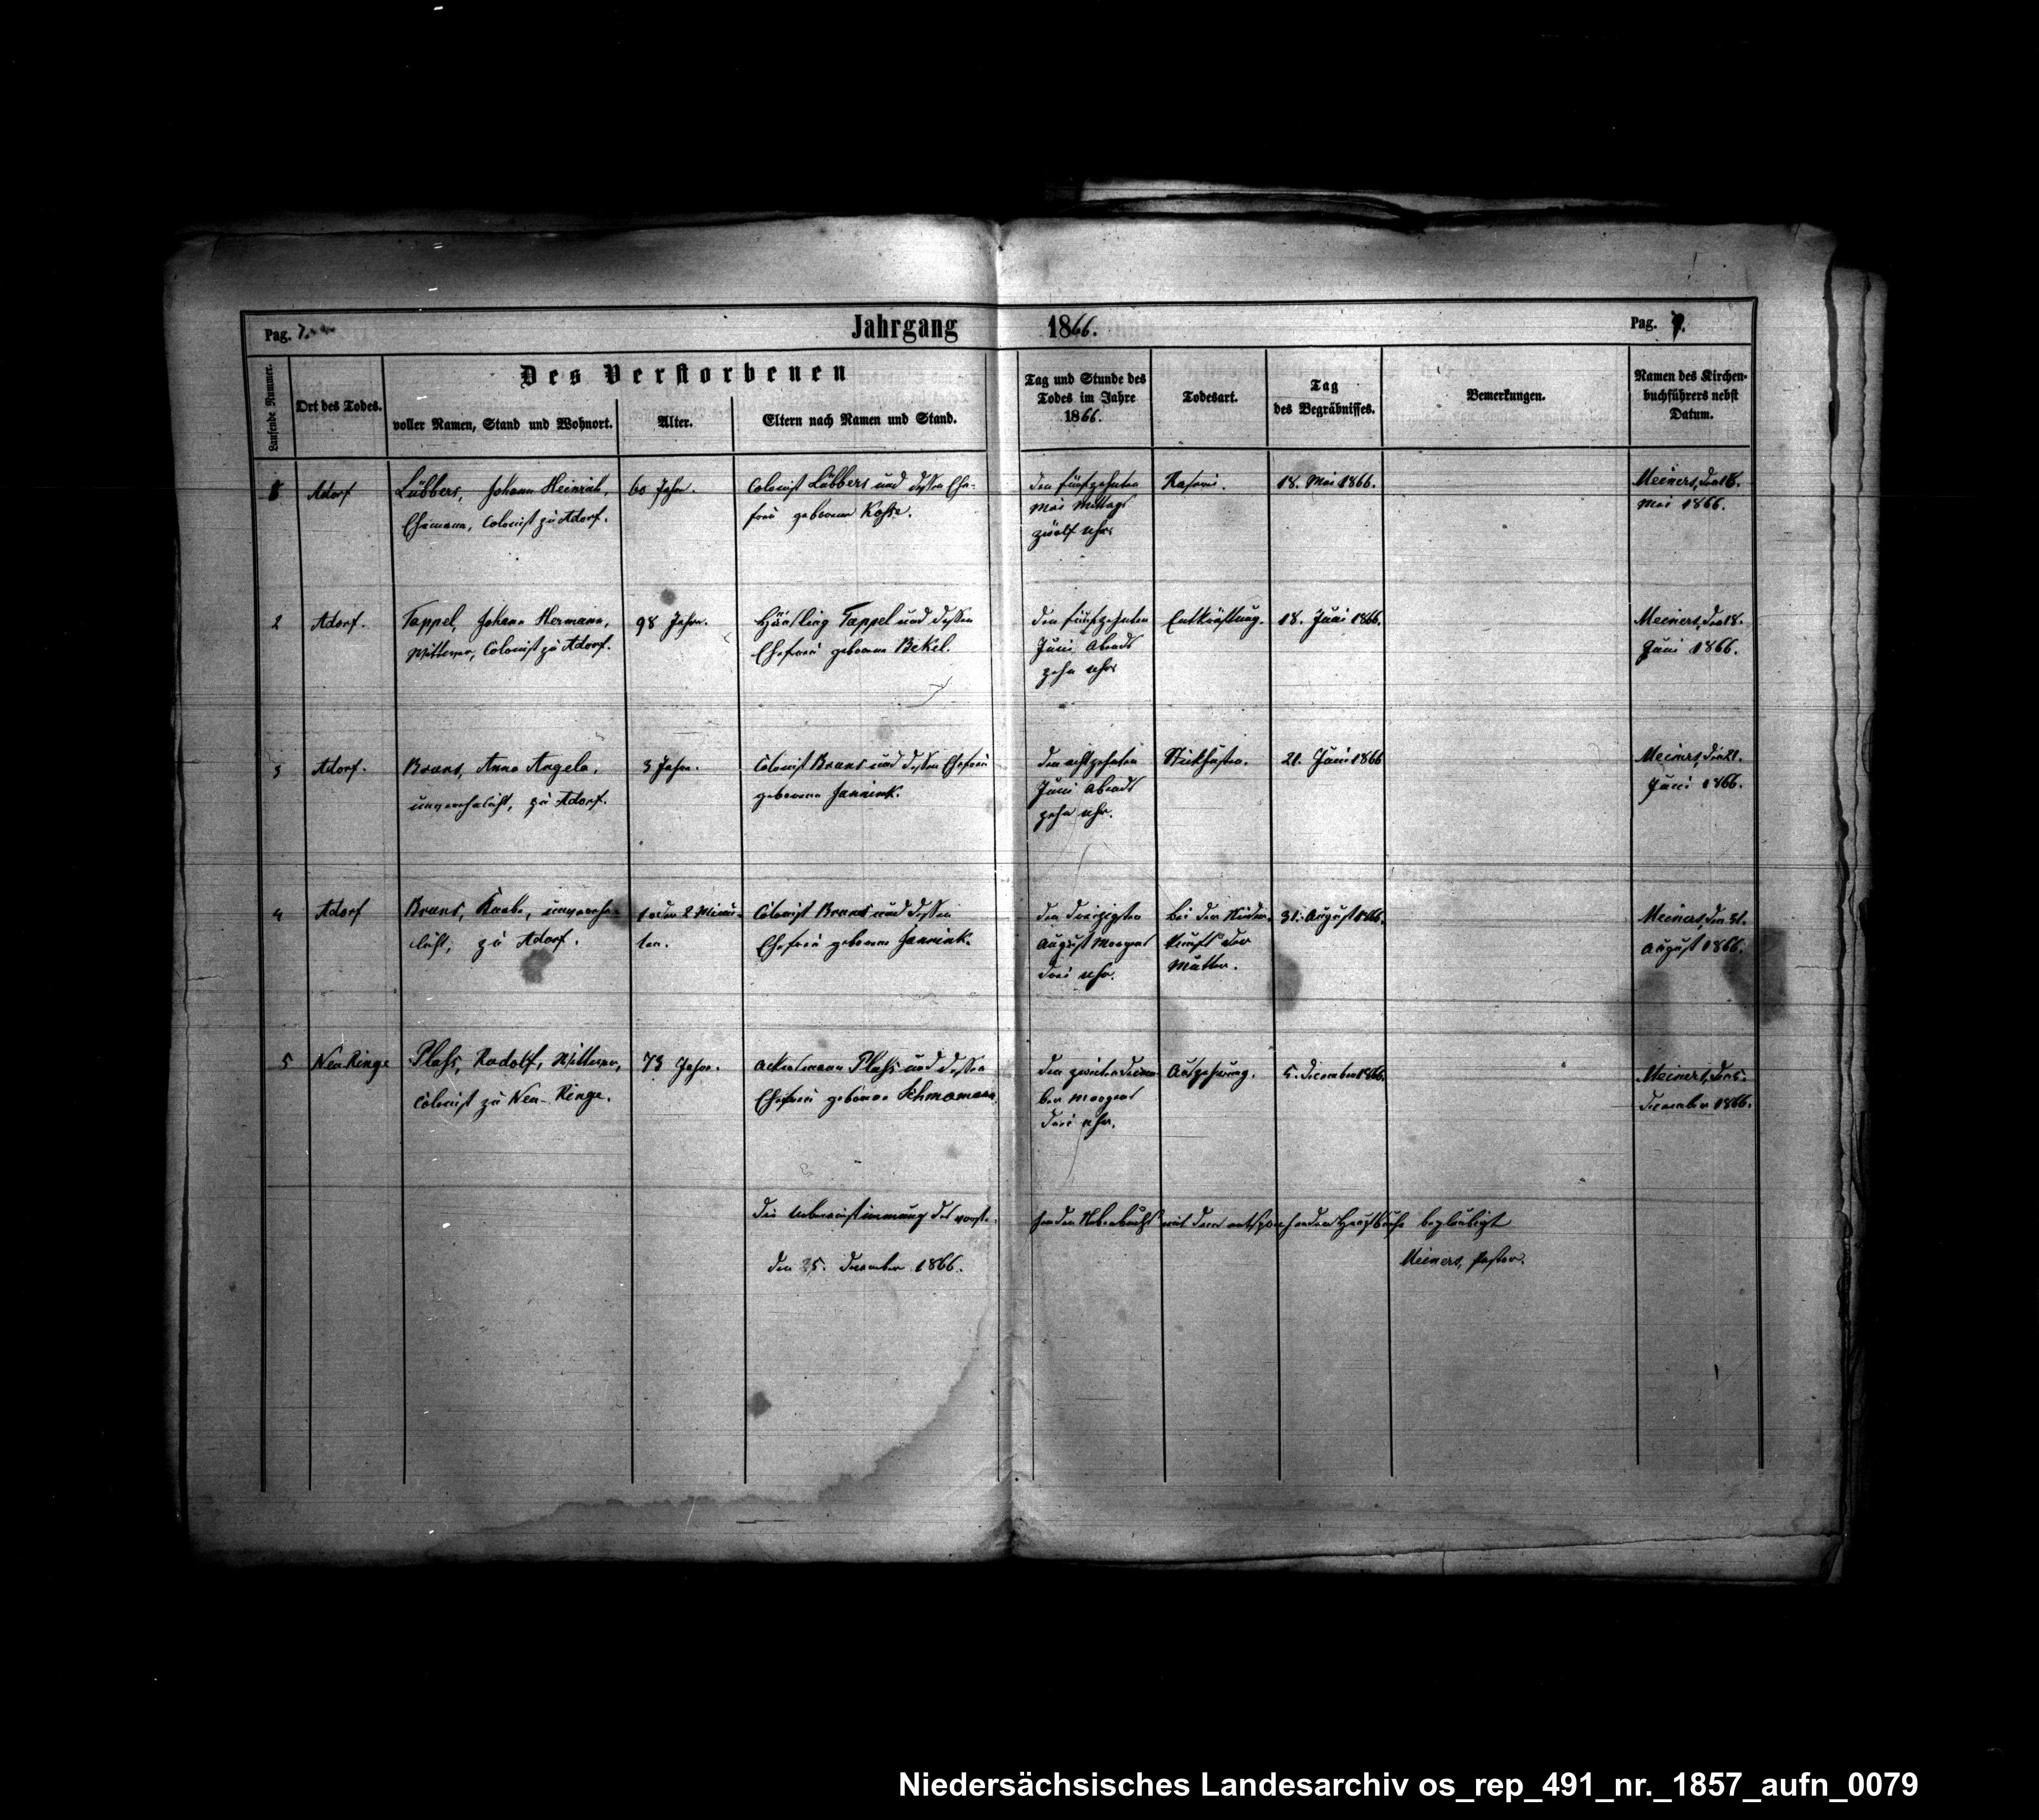 Pag. 7.
Jahrgang 1866.
Pag. 7.
Laufende Nummer.
Ort des Todes.
Des Verstorbenen
voller Namen, Stand und Wohnort.
Alter.
Eltern nach Namen und Stand.
Tag und Stunde des
Todes im Jahre
1866.
Todesart.
Tag
des Begräbnisses.
Bemerkungen.
Namen des Kirchen-
buchführers nebst
Datum.
1 Adorf Lübbers, Johann Heinrich, 60 Jahr. Colonist Lübbers und dessen Ehe- den fünfzehnten 18. Mai 1866. Meiners, den 18.
Ehemann, Colonist zu Adorf. frau geborene Mai Mittags Mai 1866.
zwölf Uhr.
2 Adorf. Tappel, Johann Hermann, 98 Jahr. Häusling Tappel und dessen den fünfzehnten Entkräftung. 18. Juni 1866. Meiners, den 18.
Wittwer, Colonist zu Adorf. Ehefrau geborene Bekel. Juni Abends Juni 1866.
zehn Uhr
3 Adorf. Brans, Anna Angela, 3 Jahr. Colonist Brans und dessen Ehefrau den achtzehnten Stickhusten. 21. Juni 1866 Meiners, den 21.
unverehelicht, zu Adorf. geborene Jannink. Juni Abends Juni 1866.
zehn Uhr.
4 Adorf Brans, Knabe, unverehe- 1 oder 2 Minu- Colonist Brans und dessen den dreizigsten Bei der Nieder- 31. August 1866. Meiners, den 31.
licht, zu Adorf. ten. Ehefrau geborene Jannink. August Morgens kunft der August 1866.
drei Uhr. Mutter.
5 Neu-Ringe Plass, Rudolf, Wittwer, 73 Jahr. Ackersmann Plass und dessen den zweiten Decem- Auszehrung. 5. December 1866. Meiners, den 5.
Colonist zu Neu-Ringe. Ehefrau geborene ber Morgens December 1866.
drei Uhr.
Die Uebereinstimmung des vorste- henden Nebenbuchs mit dem entsprechenden Hauptbuche beglaubigt
den 25. December 1866. Meiners, Pastor.
Niedersächsisches Landesarchiv os_rep_491_nr._1857_aufn_0079